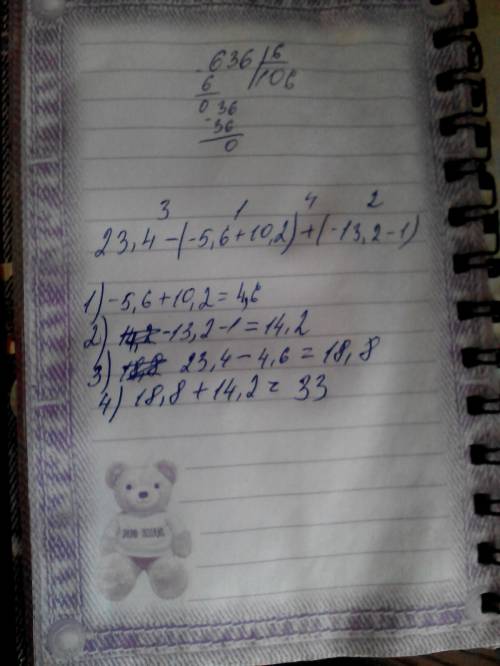 636 6
6 106
0 36
-36
0
3 1 4 2
23,4-(-5,6+10,2)+(-13,2-1)
1) -5,6+10,2=4,6
2) 14,2 -13,2-1=14,2
3) 18,8 23,4-4,6=18,8
4) 18,8+14,2= 33